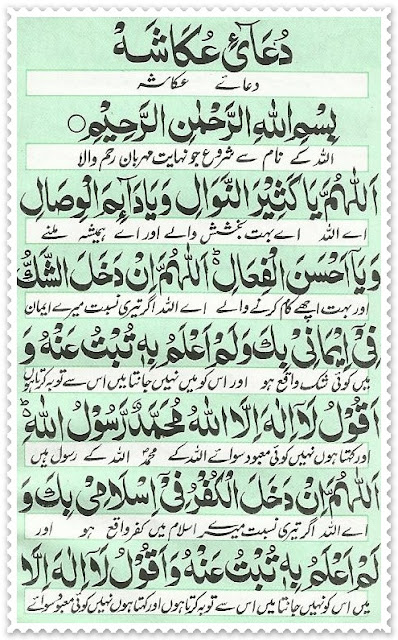 دُعَائِ عُكَاشَهْ
دعائے عکاشہ
بِسْمِ اللهِ الرَّحْمٰنِ الرَّحِيْمِ
اللہ کے نام سے شروع جو نہایت مہربان رحم والا
اَللّٰهُمَّ يَا كَثِيْرَ النَّوَالِ وَيَا دَآئِمَ الْوِصَالِ
اے اللہ اے بہت بخشش والے اور اے ہمیشہ ملنے
وَيَآ اَحْسَنَ الْفِعَالِ اَللّٰهُمَّ اِنْ دَخَلَ الشَّكُّ
اور بہت اچھے کام کرنے والے اے اللہ اگر تیری نسبت میرے ایمان
فِیْ اِيْمَانِیْ بِكَ وَلَمْ اَعْلَمْ بِهٖ تُبْتُ عَنْهُ وَ
میں کوئی شک واقع ہو اور اس کو میں نہیں جانتا میں اس سے توبہ کرتا ہوں
اَقُوْلُ لَآ اِلٰهَ اِلَّا اللهُ مُحَمَّدٌ رَّسُوْلُ اللهِ ط
اور کہتا ہوں نہیں کوئی معبود سوائے اللہ کے محمدؐ اللہ کے رسول ہیں
اَللّٰهُمَّ اِنْ دَخَلَ الْكُفْرُ فِیْٓ اِسْلَامِیْ بِكَ وَ
اے اللہ اگر تیری نسبت میرے اسلام میں کفر واقع ہو اور
لَمْ اَعْلَمْ بِهٖ تُبْتُ عَنْهُ وَاَقُوْلُ لَآ اِلٰهَ اِلَّا
میں اس کو نہیں جانتا میں اس سے توبہ کرتا ہوں اور کہتا ہوں نہیں کوئی معبود سوائے